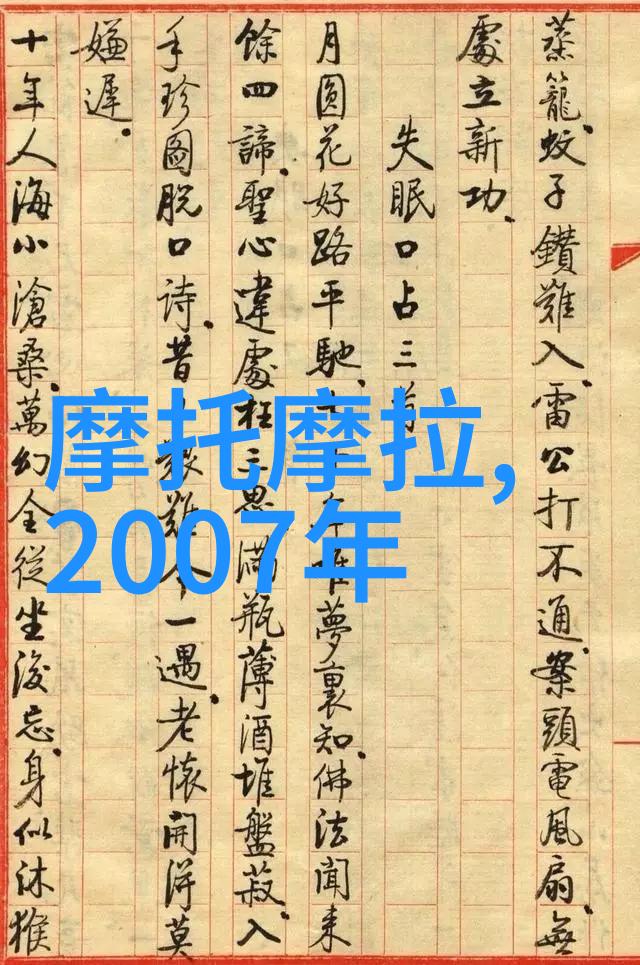 蒸籠.蚊子鑽難入.雷公打不通.案頭電風扇.無
處立新功.
失眠口占三
月圓花好路平馳.夢裏知.佛法聞來
餘四諦.聖心違處枉三思滿瓶薄酒堆盤菽.入
手珍圖脫口詩.昔艱難今一遇.老懷開得莫
嫌遲.
十年人海小滄桑.萬幻全從坐後忘.身似沐猴
摩托摩拉,
2007年